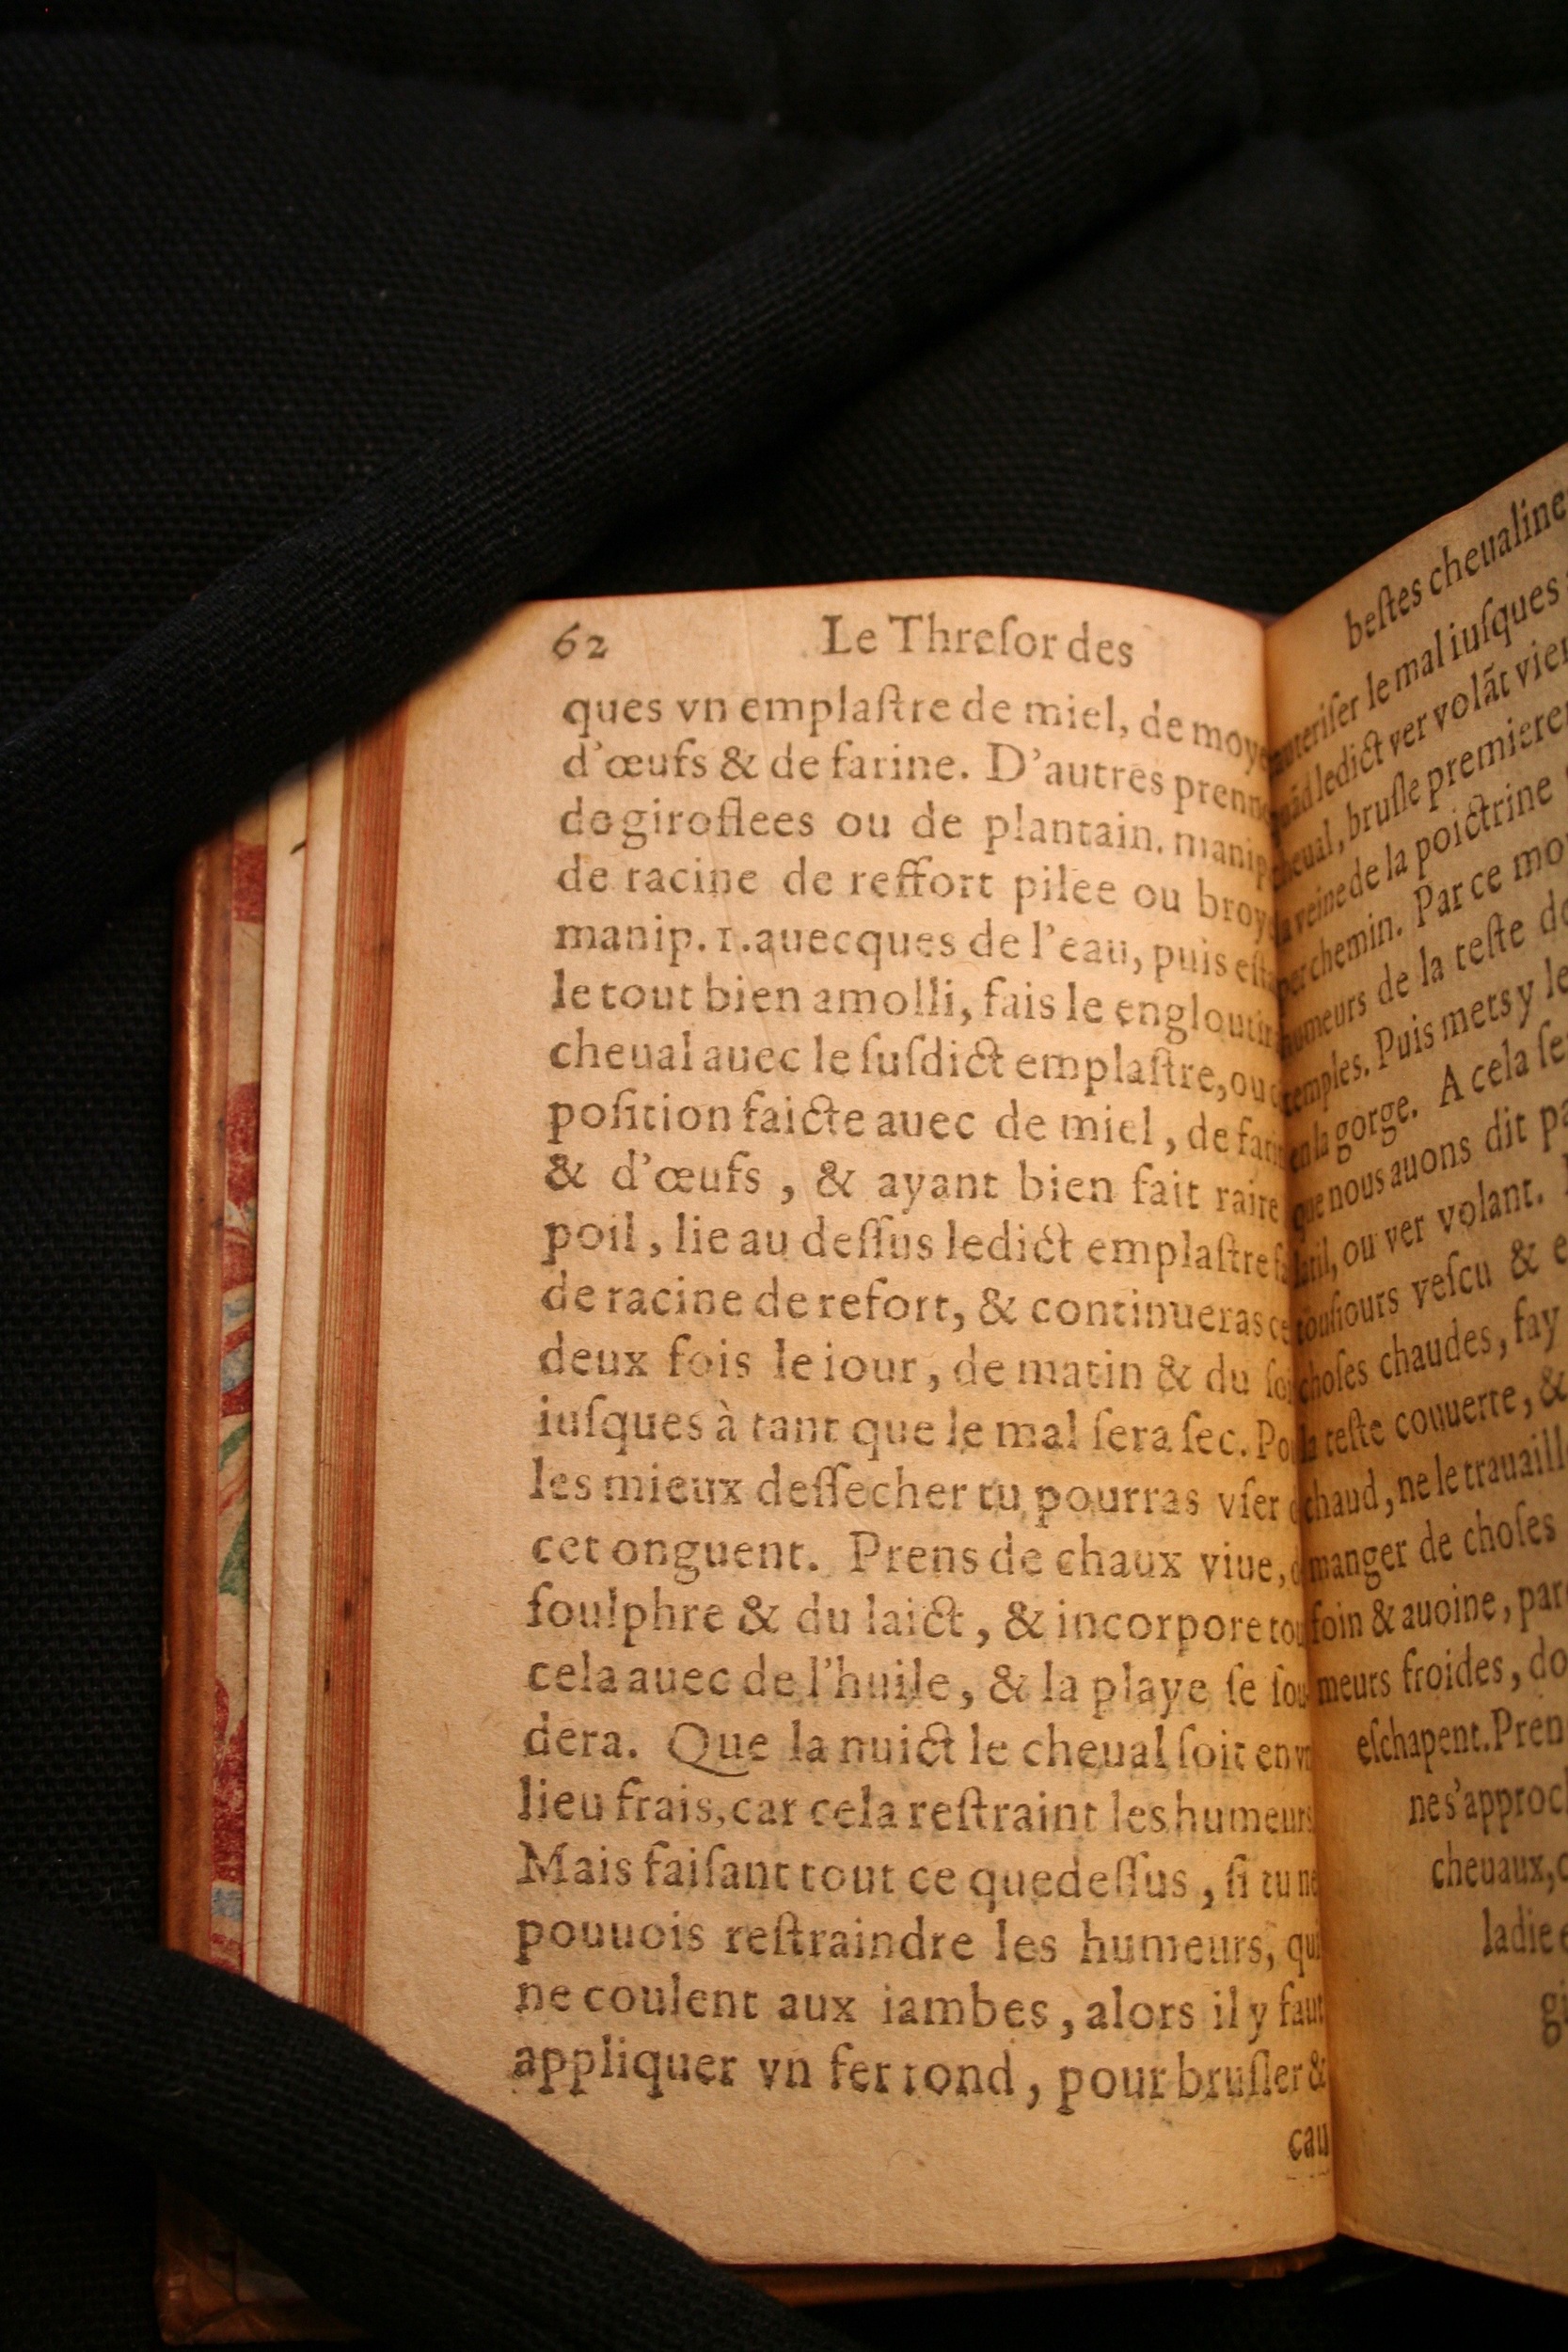 62 Le Threſor des
ques vn emplaſtre de miel, de moye
d'œufs & de farine. D'autres prenn
de giroflees ou de plantain. manip
de racine de reffort pilee ou broy
manip. 1. auecques de l'eau, puis eſta
le tout bien amolli, fais le engloutir
cheual auec le ſuſdict emplaſtre, ou
poſition faicte auec de miel, de fari
& d'œufs, & ayant bien fait raire
poil, lie au deſſus ledict emplaſtre
de racine de refort, & continueras ce
deux fois le iour, de matin & du ſoi
iuſques à tant que le mal ſera ſec. Po
les mieux deſſecher tu pourras vſer
cet onguent. Prens de chaux viue,
ſoulphre & du laict, & incorpore tou
cela auec de l'huile, & la playe ſe ſou
dera. Que la nuict le cheual ſoit en vn
lieu frais, car cela reſtraint les humeurs
Mais faiſant tout ce quedeſſus, ſi tu ne
pouuois reſtraindre les humeurs, qui
ne coulent aux iambes, alors il y faut
appliquer vn fer rond, pour bruſler &
cau
beſtes cheualine
uteriſer le mal iuſques
uãd ledict ver volãt vien
heual, bruſle premierem
la veine de la poictrine
per chemin. Par ce mo
humeurs de la teſte de
temples. Puis mets y le
en la gorge. A cela ſe
que nous auons dit pa
ou ver volant.
touſiours veſcu & e
choſes chaudes, fay
la teſte couuerte, &
chaud, ne le trauaill
manger de choſes
foin & auoine, par
meurs froides, do
eſchapent. Pren
ne s'approch
cheuaux, c
ladie e
gi